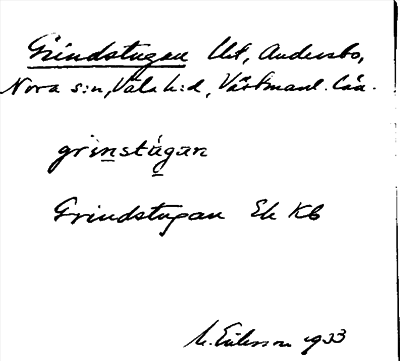 Grindstugan Ut, Andersbo,
Nora s:n, Våla h:d, Västmanl. län.
grinstùgan
Grindstugan Ek Kb
M. Eriksson 1933